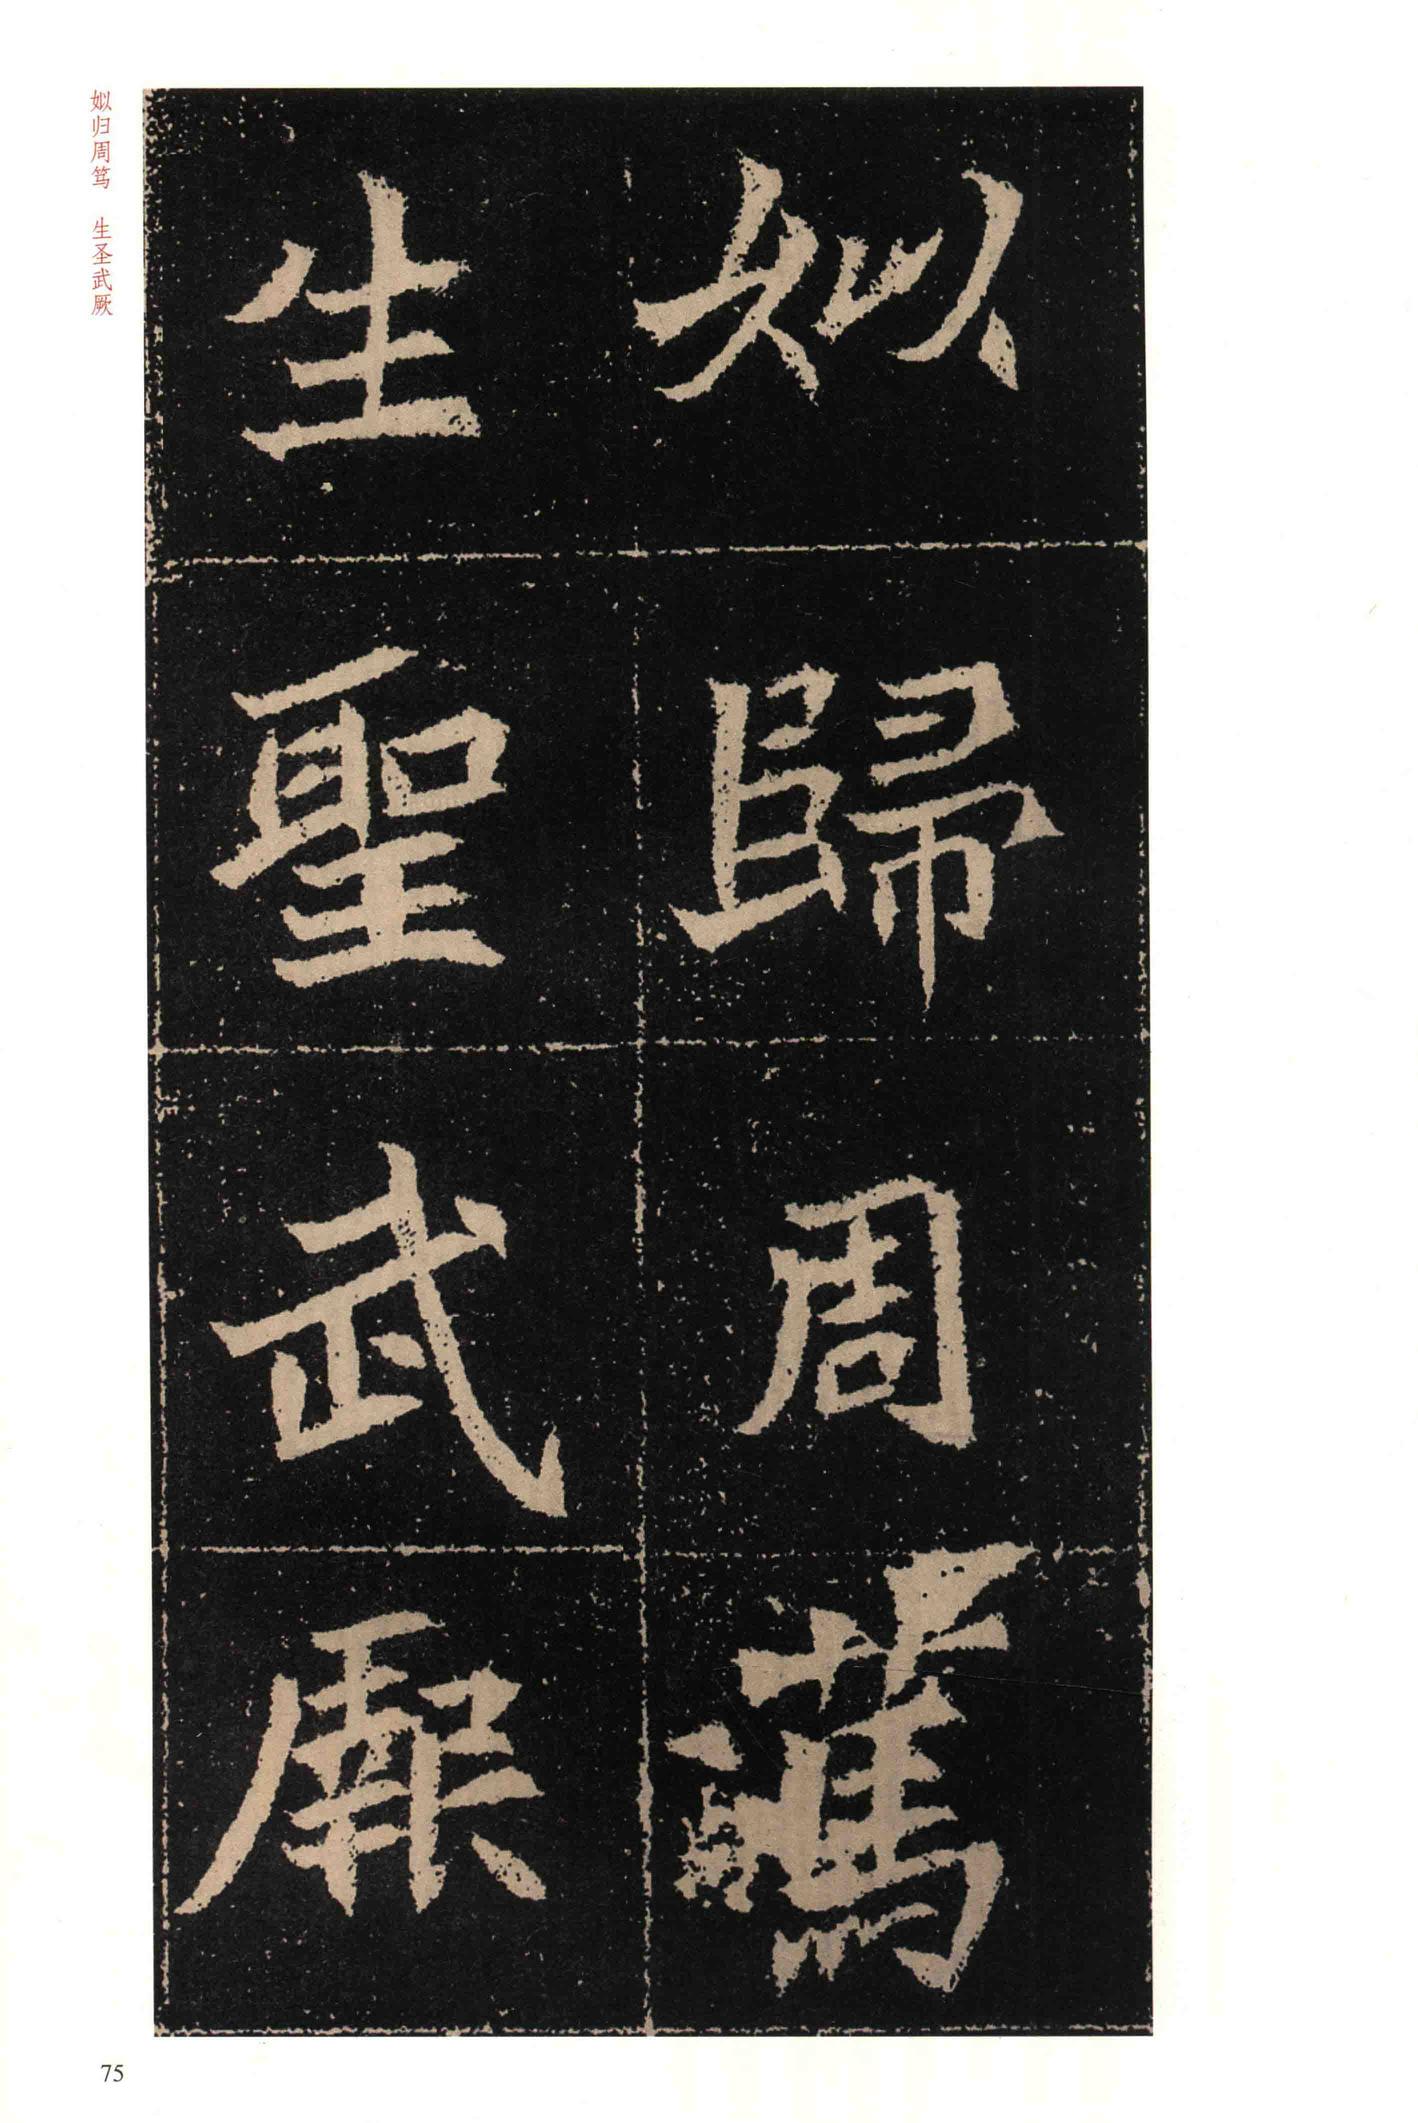 姒歸周篤
生聖武厥
姒归周笃 生圣武厥
75